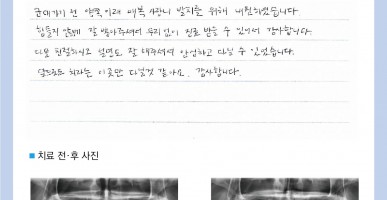 군대가기 전 양쪽 아래 매복 사랑니 발치를 위해 내원하였습니다.
힘들지 않게 잘 뽑아주셔서 무리없이 진료 받을 수 있어서 감사합니다.
다들 친절하시고 설명도 잘 해주셔서 안심하고 다닐 수 있었습니다.
앞으로도 치과는 이곳만 다닐것 같아요. 감사합니다.
■ 치료 전·후 사진